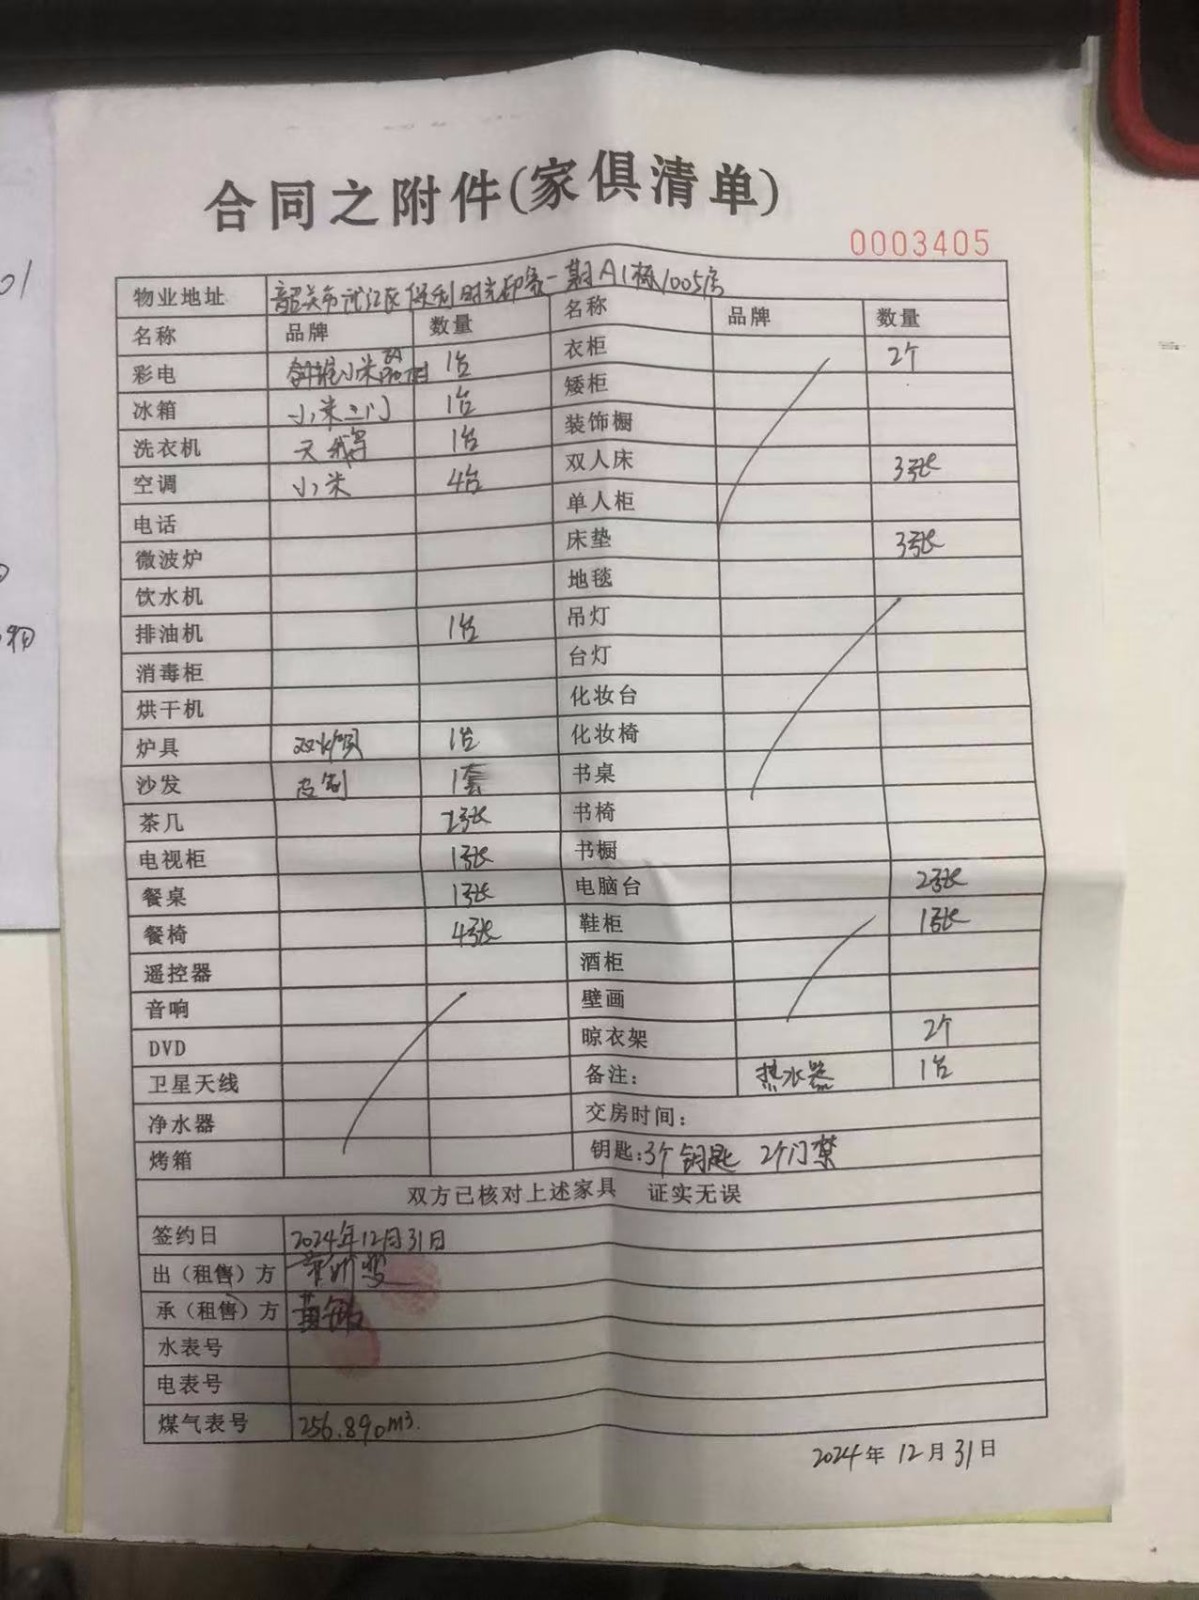 合同之附件(家俱清单)
0003405
物业地址 韶关市武江区保利时光印象一期A1栋1005房
名称 品牌 数量 名称 品牌 数量
彩电 小米 1台 衣柜 2个
冰箱 小米二门 1台 矮柜
洗衣机 天鹅 1台 装饰橱
空调 小米 4台 双人床 3张
电话 单人柜
微波炉 床垫 3张
饮水机 地毯
排油机 1台 吊灯
消毒柜 台灯
烘干机 化妆台
炉具 双炉 1台 化妆椅
沙发 皮制 1套 书桌
茶几 2张 书椅
电视柜 1张 书橱
餐桌 1张 电脑台 2张
餐椅 4张 鞋柜 1张
遥控器 酒柜
音响 壁画
DVD 晾衣架 2个
卫星天线 备注: 热水器 1台
净水器 交房时间:
烤箱 钥匙:3个钥匙 2个门禁
双方已核对上述家具 证实无误
签约日 2024年12月31日
出（租售）方
承（租售）方 黄
水表号
电表号
煤气表号 256.890m³.
2024年12月31日